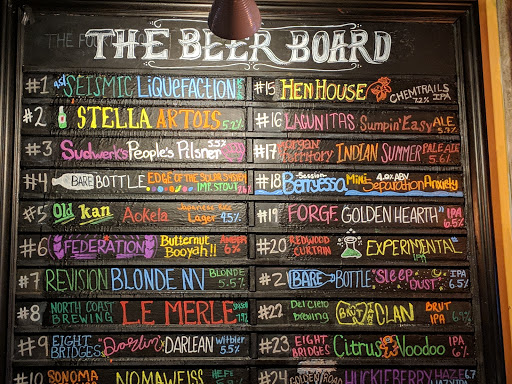 THE BEER BOARD
#1 SEISMIC LIQUEFACTION
#2 STELLA ARTOIS 5.2%
#3 Sudwerk's People's Pilsner
#4 BARE BOTTLE EDGE OF THE SOLAR SYSTEM IMP. STOUT
#5 Old Kan Aokela Japanese Rice Lager 4.5%
#6 FEDERATION Butternut Booyah!! AMBER 6%
#7 REVISION BLONDE NV BLONDE 5.5%
#8 NORTH COAST BREWING LE MERLE
#9 EIGHT BRIDGES Darlin' DARLEAN Witbier 5.5%
#10 SONOMA NOMAWEISS HEFE
#15 HEN HOUSE CHEMTRAILS 7.2% IPA
#16 LAGUNITAS Sumpin' Easy ALE 5.7%
#17 Morgan Territory INDIAN SUMMER PALE ALE 5.6%
#18 Berryessa Mini Separation Anxiety Session 4.0% ABV
#19 FORGE GOLDEN HEARTH IPA 6.5%
#20 REDWOOD CURTAIN EXPERIMENTAL
#2 BARE BOTTLE SLEEP DUST IPA 6.5%
#22 Del Cielo Brewing BRUT CLAN BRUT IPA
#23 EIGHT BRIDGES Citrus Voodoo IPA 6%
#24 HUCKLEBERRY HAZE 6.7